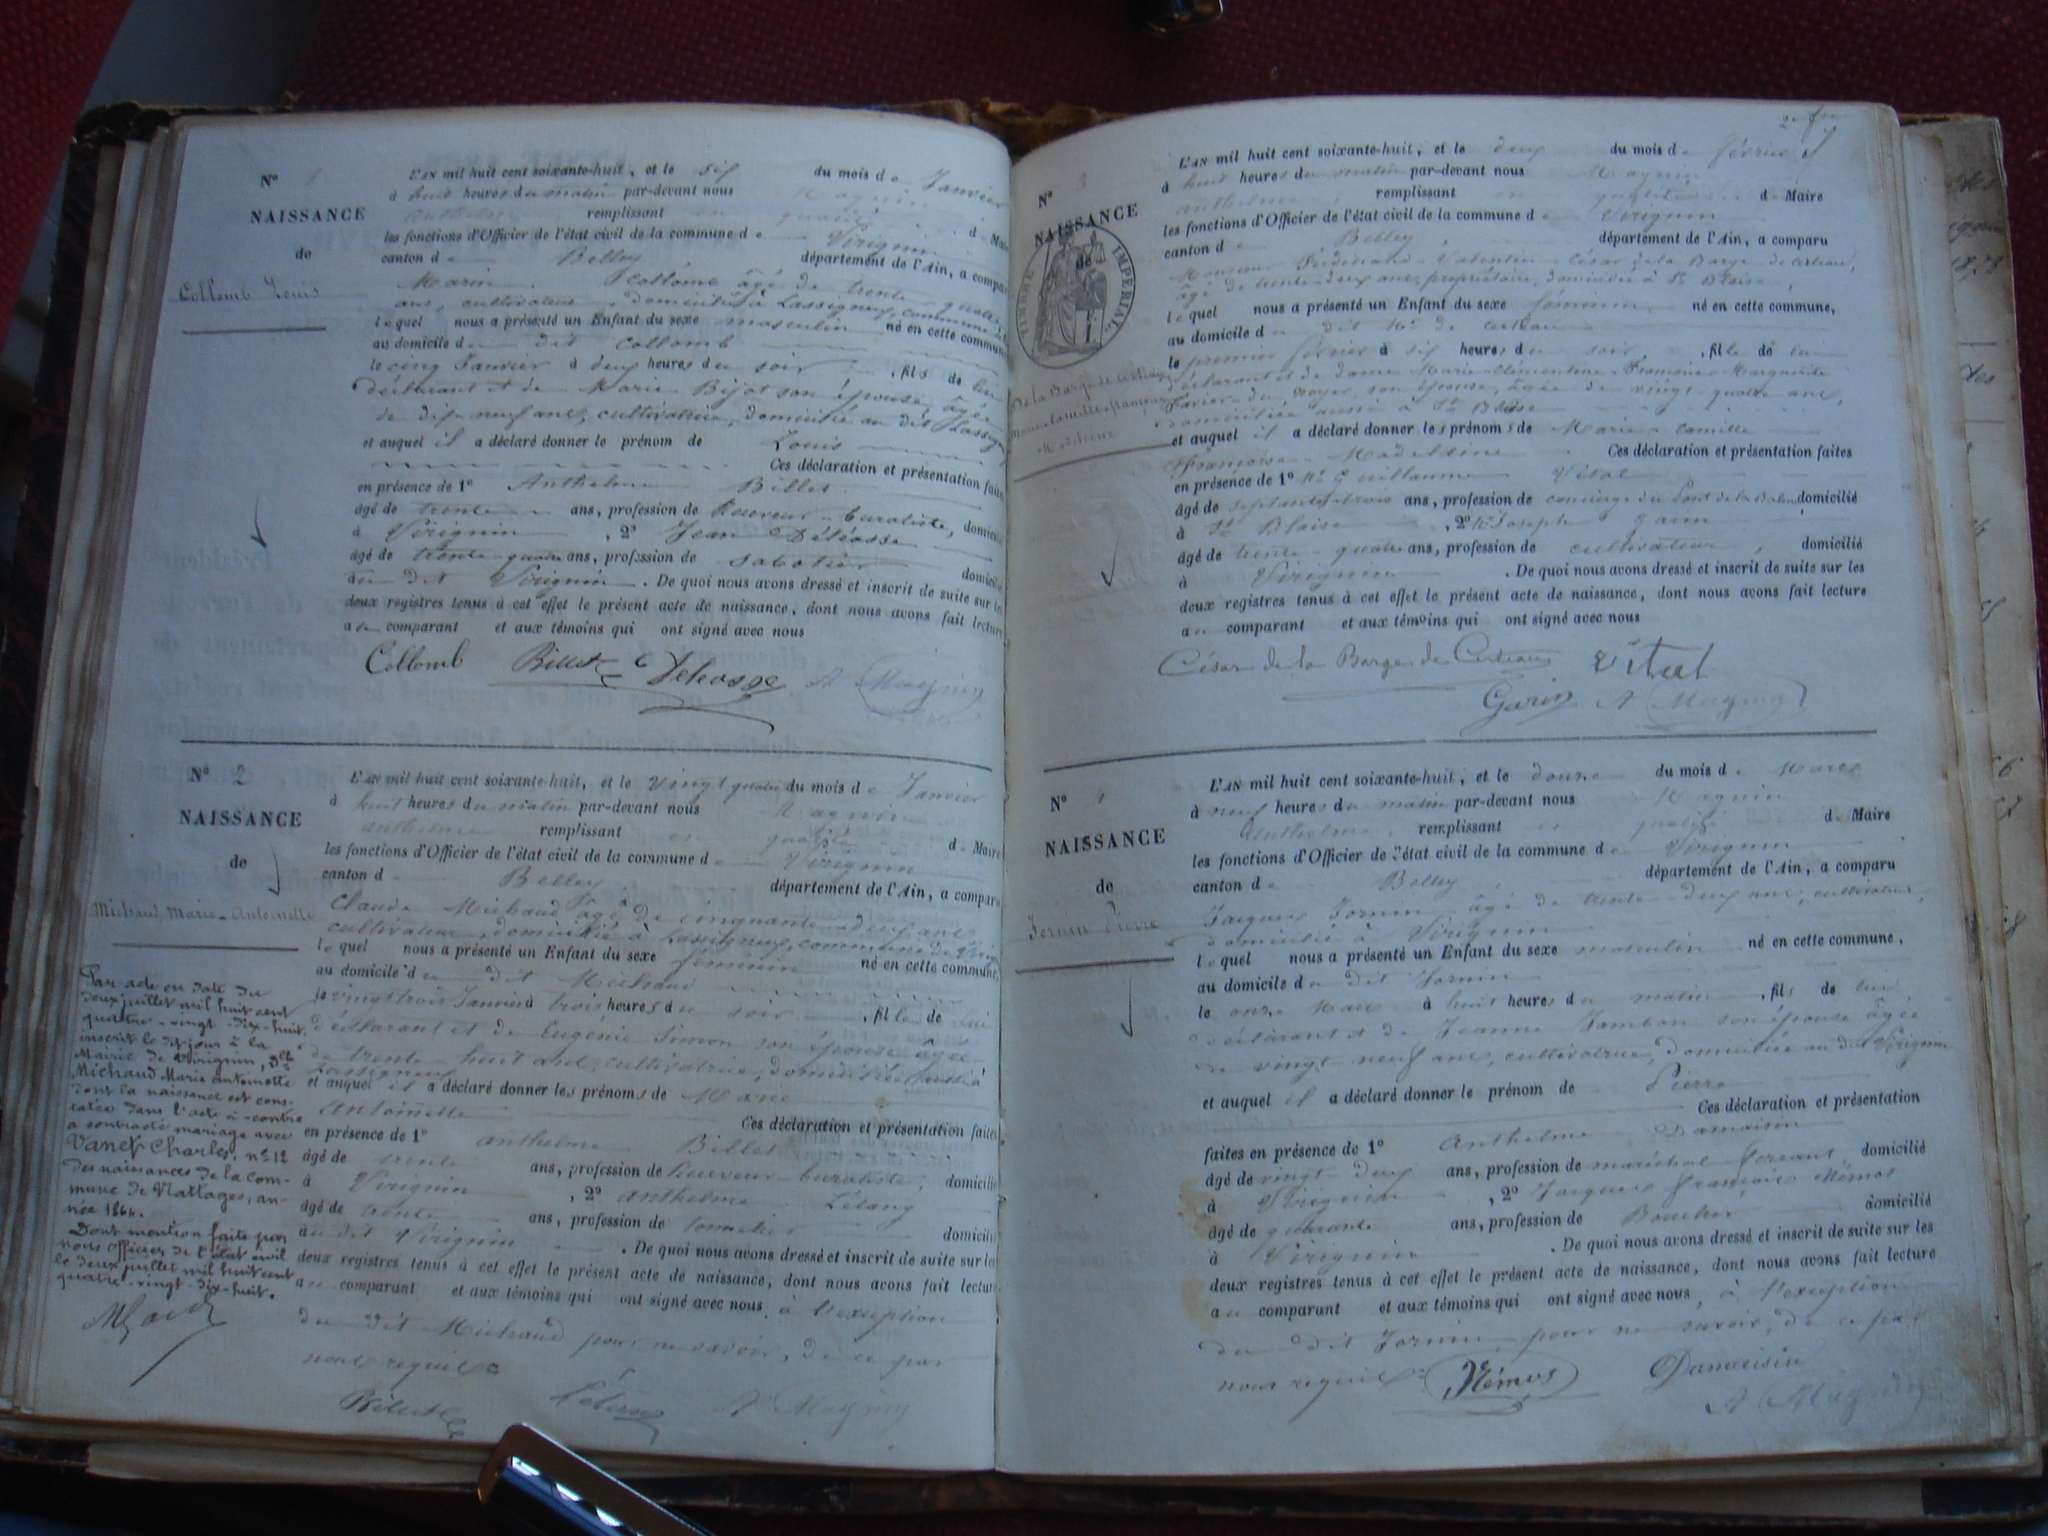 N° 1
NAISSANCE
de
Collomb Louis
L'AN mil huit cent soixante-huit, et le six du mois de Janvier
à huit heures du matin par-devant nous Magnin
Anthelme remplissant en qualité de Maire
les fonctions d'Officier de l'état civil de la commune de Virignin
canton de Belley département de l'Ain, a comparu
Marin Collomb âgé de trente-quatre
ans, cultivateur, domicilié à Lassignieu, commune de
lequel nous a présenté un Enfant du sexe masculin né en cette commune
au domicile du dit Collomb
le cinq Janvier à deux heures du soir, fils de lui
déclarant et de Marie Bijot son épouse, âgée
de dix-neuf ans, cultivatrice, domiciliée au dit Lassign
et auquel il a déclaré donner le prénom de Louis
Ces déclaration et présentation faites
en présence de 1° Anthelme Billet
âgé de trente ans, profession de Receveur-buraliste, domicilié
à Virignin, 2° Jean Déléosse
âgé de trente-quatre ans, profession de sabotier domicilié
au dit Virignin. De quoi nous avons dressé et inscrit de suite sur les
deux registres tenus à cet effet le présent acte de naissance, dont nous avons fait lecture
au comparant et aux témoins qui ont signé avec nous
Collomb Billet A Magnin
N° 2
NAISSANCE
de
Michaud, Marie-Antoinette
L'AN mil huit cent soixante-huit, et le vingt quatre du mois de Janvier
à huit heures du matin par-devant nous Magnin
Anthelme remplissant en qualité de Maire
les fonctions d'Officier de l'état civil de la commune de Virignin
canton de Belley département de l'Ain, a comparu
Claude Michaud âgé de cinquante-deux ans
cultivateur, domicilié à Lassignieu, commune de Virig
lequel nous a présenté un Enfant du sexe féminin né en cette commune,
au domicile du dit Michaud
le vingt trois Janvier à trois heures du soir, fille de lui
déclarant et de Eugénie Simon son épouse âgée
de trente-huit ans, cultivatrice, domiciliée aussi à
Lassignieu
et auquel il a déclaré donner les prénoms de Marie
Antoinette Ces déclaration et présentation faites
en présence de 1° Anthelme Billet
âgé de trente ans, profession de Receveur-buraliste, domicilié
à Virignin, 2° Anthelme
âgé de trente ans, profession de tonnelier domicilié
au dit Virignin. De quoi nous avons dressé et inscrit de suite sur les
deux registres tenus à cet effet le présent acte de naissance, dont nous avons fait lecture
au comparant et aux témoins qui ont signé avec nous, à l'exception
du dit Michaud pour ne savoir, de ce par
nous requis
Billet A Magnin
Par acte en date du
deux juillet mil huit cent
quatre-vingt-dix-huit,
inscrit le dit jour à la
Mairie de Virignin, Dlle
Michaud Marie Antoinette
dont la naissance est cons-
tatée dans l'acte ci-contre
a contracté mariage avec
Vanet Charles, n° 12
des naissances de la com-
mune de Nattages, an-
née 1864.
Dont mention faite par
nous Officier de l'état civil
le deux juillet mil huit cent
quatre-vingt-dix-huit.
N° 3
NAISSANCE
de
TIMBRE IMPERIAL
De la Barge de Certeau
Marie Camille Françoise
Madeleine
L'AN mil huit cent soixante-huit, et le deux du mois de février
à huit heures du matin par-devant nous Magnin
Anthelme remplissant en qualité de Maire
les fonctions d'Officier de l'état civil de la commune de Virignin
canton de Belley, département de l'Ain, a comparu
Monsieur Ferdinand-Valentin-César de la Barge de Certeau,
âgé de trente-deux ans, propriétaire, domicilié à St Blaise,
lequel nous a présenté un Enfant du sexe féminin né en cette commune,
au domicile du dit Mr de Certeau
le premier février à six heures du soir, fille de lui
déclarant et de dame Marie-Clémentine-Françoise-Marguerite
son épouse, âgée de vingt-quatre ans,
domiciliée aussi à St Blaise
et auquel il a déclaré donner les prénoms de Marie-Camille
Françoise-Madeleine Ces déclaration et présentation faites
en présence de 1° Mr Guillaume Vital
âgé de septante-trois ans, profession de concierge du Pont de la Balme domicilié
à St Blaise, 2° Mr Joseph Garin
âgé de trente-quatre ans, profession de cultivateur, domicilié
à Virignin. De quoi nous avons dressé et inscrit de suite sur les
deux registres tenus à cet effet le présent acte de naissance, dont nous avons fait lecture
au comparant et aux témoins qui ont signé avec nous
César de la Barge de Certeau Vital
Garin A Magnin
N° 4
NAISSANCE
de
Jornin Pierre
L'AN mil huit cent soixante-huit, et le douze du mois de Mars
à neuf heures du matin par-devant nous Magnin
Anthelme, remplissant en qualité de Maire
les fonctions d'Officier de l'état civil de la commune de Virignin
canton de Belley, département de l'Ain, a comparu
Jacques Jornin âgé de trente-deux ans, cultivateur,
domicilié à Virignin
lequel nous a présenté un Enfant du sexe masculin né en cette commune,
au domicile du dit Jornin
le onze Mars à huit heures du matin, fils de lui
déclarant et de Jeanne Jambon son épouse âgée
de vingt neuf ans, cultivatrice, domiciliée au dit Virignin
et auquel il a déclaré donner le prénom de Pierre
Ces déclaration et présentation
faites en présence de 1° Anthelme Damaisin
âgé de vingt-deux ans, profession de maréchal-ferrant domicilié
à Virignin, 2° Jacques François Némos
âgé de quarante ans, profession de Boucher domicilié
à Virignin. De quoi nous avons dressé et inscrit de suite sur les
deux registres tenus à cet effet le présent acte de naissance, dont nous avons fait lecture
au comparant et aux témoins qui ont signé avec nous, à l'exception
du dit Jornin, pour ne savoir, de ce par
nous requis Némos Damaisin
A Magnin